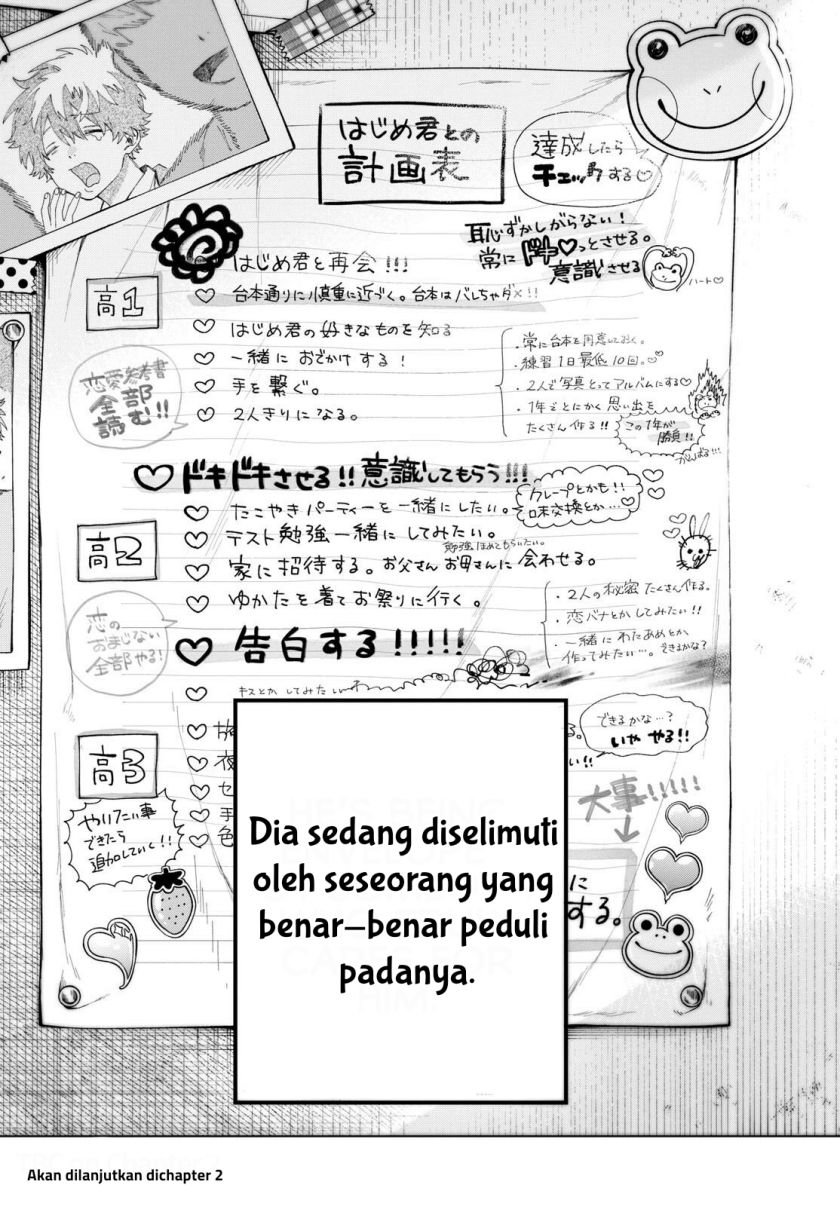 はじめ君との
計画表
達成したら
チェックする♡
恥ずかしがらない！
常にドキ♡っとさせる。
意識させる
ハート♡
はじめ君と再会!!!
高1
♡ 台本通りに慎重に近づく。台本はバレちゃダメ!!
♡ はじめ君の好きなものを知る
♡ 一緒におでかけする！
♡ 手を繋ぐ。
♡ 2人きりになる。
恋愛参考書
全部
読む!!
・常に台本を用意しておく。
・練習1日最低10回。
・2人で写真とってアルバムにする♡
・1年ごとにかく思い出を
たくさん作る!!
この1年が
勝負!!
がんばる!!!
♡ドキドキさせる!!意識してもらう!!!
♡ たこやきパーティーを一緒にしたい。
クレープとかも!!
味交換とか…
高2
♡ テスト勉強一緒にしてみたい。
勉強ほめてもらいたい。
♡ 家に招待する。お父さんお母さんに会わせる。
♡ ゆかたを着てお祭りに行く。
♡ 告白する!!!!!
恋の
おまじない
全部やる!
・2人の秘密たくさん作る。
・恋バナとかしてみたい!!
・一緒にわたあめとか
作ってみたい…。できるかな?
♡ キスとかしてみたい
高3
できるかな…?
いや やる!!
大事!!!!!
やりたい事
できたら
追加していく!!
に
する。
Dia sedang diselimuti
oleh seseorang yang
benar-benar peduli
padanya.
Akan dilanjutkan dichapter 2